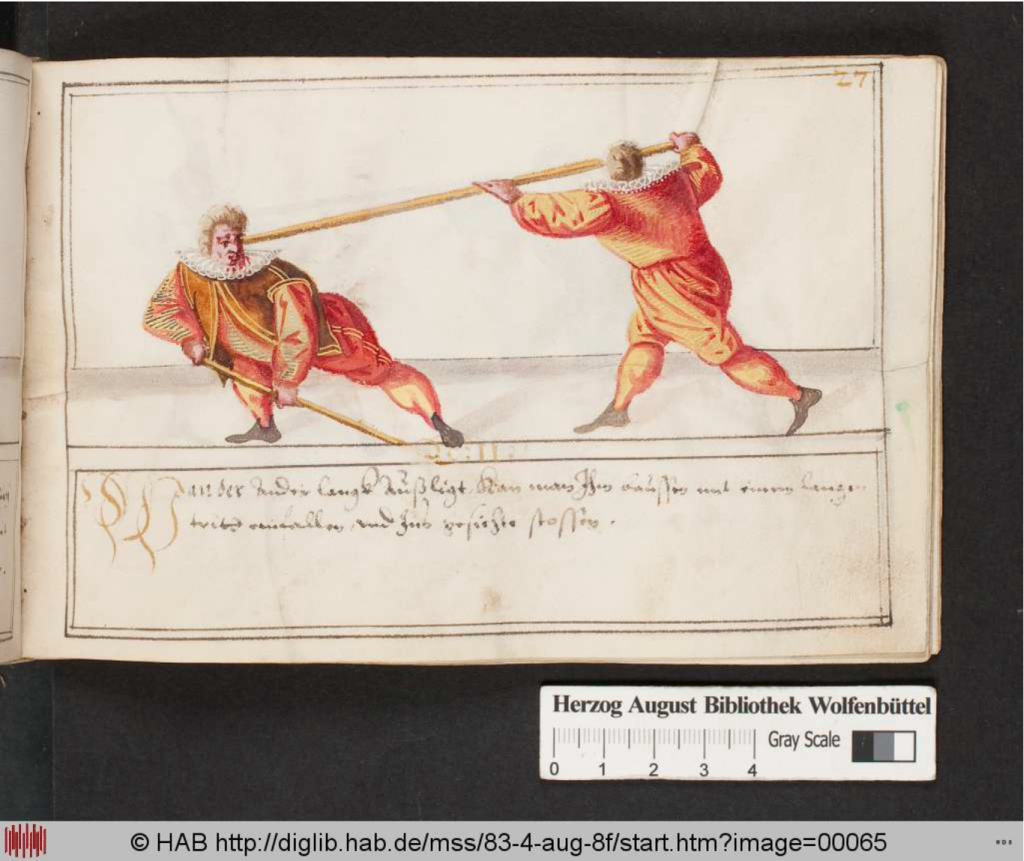 27
Wan der Ander langk Außligt, Kan man Ihm daussen mit einem langen
tritt einfallen, und Ins gesichte stossen.
Herzog August Bibliothek Wolfenbüttel
Gray Scale
0 1 2 3 4
© HAB http://diglib.hab.de/mss/83-4-aug-8f/start.htm?image=00065